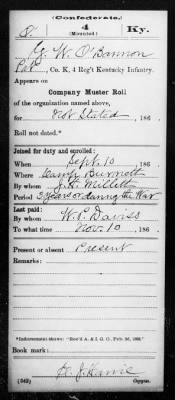 (Confederate.)
O. 4 Ky.
(Mounted)
G. W. O'Bannon
Pvt, Co. K, 4 Reg't Kentucky Infantry.
Appears on
Company Muster Roll
of the organization named above,
for Not Stated, 186 .
Roll not dated.*
Joined for duty and enrolled:
When Sept. 10, 186 .
Where Camp Burnett
By whom J. H. Millett
Period 3 years or during the War
Last paid:
By whom W. P. Daviss
To what time Nov. 10, 186 .
Present or absent Present
Remarks:
Book mark:
(642) Copyist.